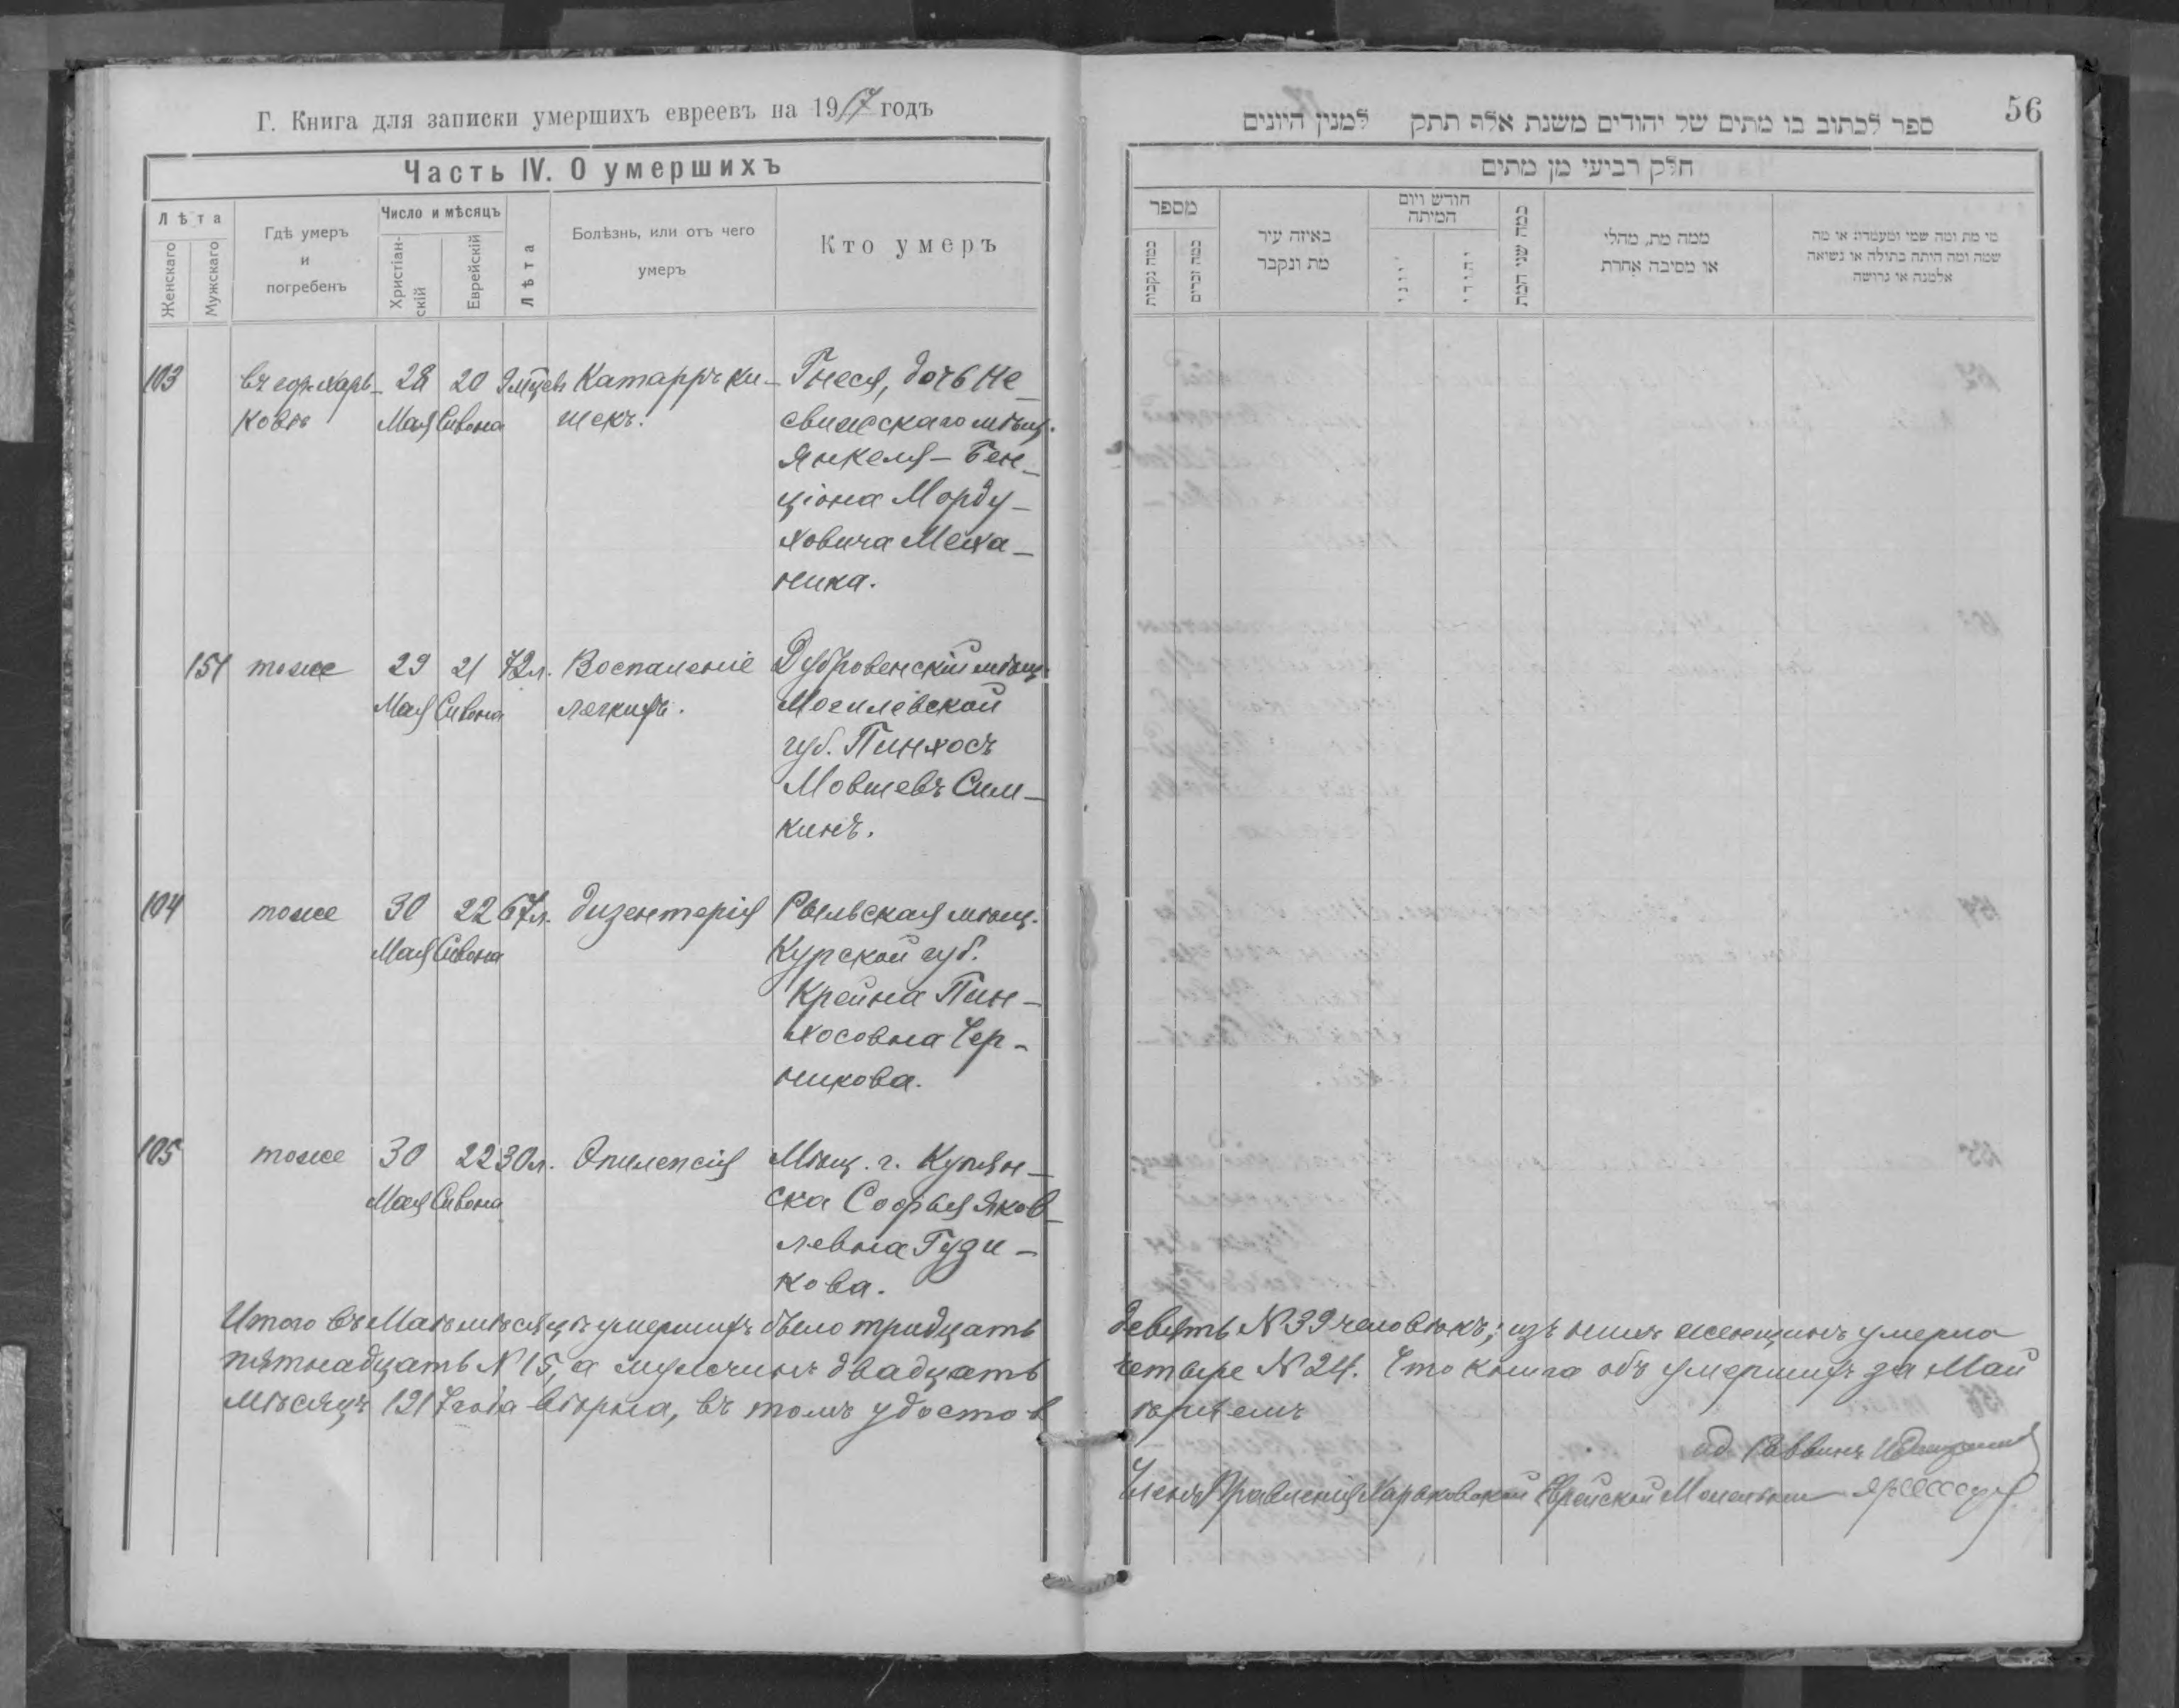 Г. Книга для записки умершихъ евреевъ на 1917 годъ
Часть IV. О умершихъ
Лѣта
Женскаго
Мужскаго
Гдѣ умеръ
и
погребенъ
Число и мѣсяцъ
Христіан-
скій
Еврейскій
Лѣта
Болѣзнь, или отъ чего
умеръ
Кто умеръ
103 въ гор. Харь- 28 20 Катарръ ки- Гнеся, дочь Не
ковѣ Мая Сивона шекъ. свижскаго мѣщ.
Янкеля-Бен-
ціона Морду-
ховича Меха-
ника.
151 тоже 29 21 72 л. Воспаленіе Дубровенскій мѣщ.
Мая Сивона легкихъ. Могилевской
губ. Пинхосъ
Мовшевъ Сим-
кинъ.
104 тоже 30 22 67 л. Дизентерія Рыльская мѣщ.
Мая Сивона Курской губ.
Крейна Пин-
хосовна Чер-
никова.
105 тоже 30 22 30 л. Эпилепсія Мѣщ. г. Купян-
Мая Сивона ска Софья Яков-
левна Гузи-
кова.
Итого въ Маѣ мѣсяцѣ умершихъ было тридцать
пятнадцать № 15, а мужчинъ двадцать
мѣсяцъ 1917 года вѣрна, въ томъ удостов
56
ספר לכתוב בו מתים של יהודים משנת אלף תתק למנין היונים
חלק רביעי מן מתים
מספר
כמה נקבות
כמה זכרים
באיזה עיר
מת ונקבר
חודש ויום
המיתה
יווני
יהודי
כמה שני המת
ממה מת, מחלי
או מסיבה אחרת
מי מת ומה שמו ומעמדו או מה
שמה ומה היתה בתולה או נשואה
אלמנה או גרושה
девять № 39 человѣкъ; изъ нихъ женщинъ умерло
четыре № 24. Что книга объ умершихъ за Май
ѣряемъ
Раввинъ
Членъ Правленія Харьковской Еврейской Молельни